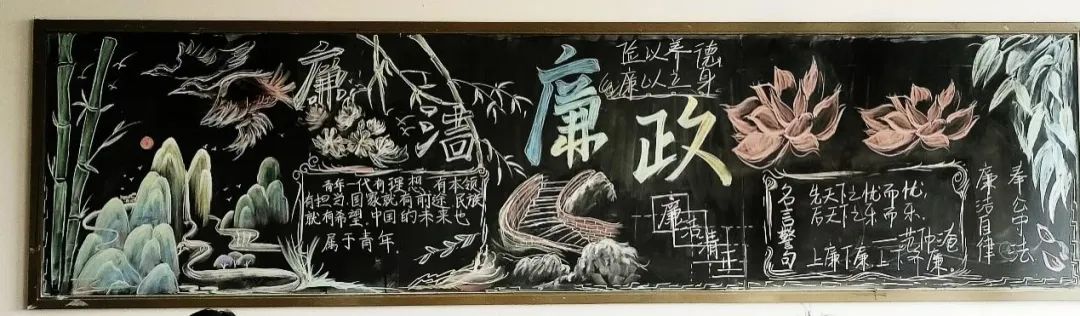 廉
青年一代有理想 有本领
有担当,国家就有前途,民族
就有希望.中国的未来也
属于青年.
廉政
俭以养德
廉以立身
廉洁清正
名言警句
先天下之忧而忧,
后天下之乐而乐.
——范仲淹
上廉下廉,上下
奉公守法
廉洁自律